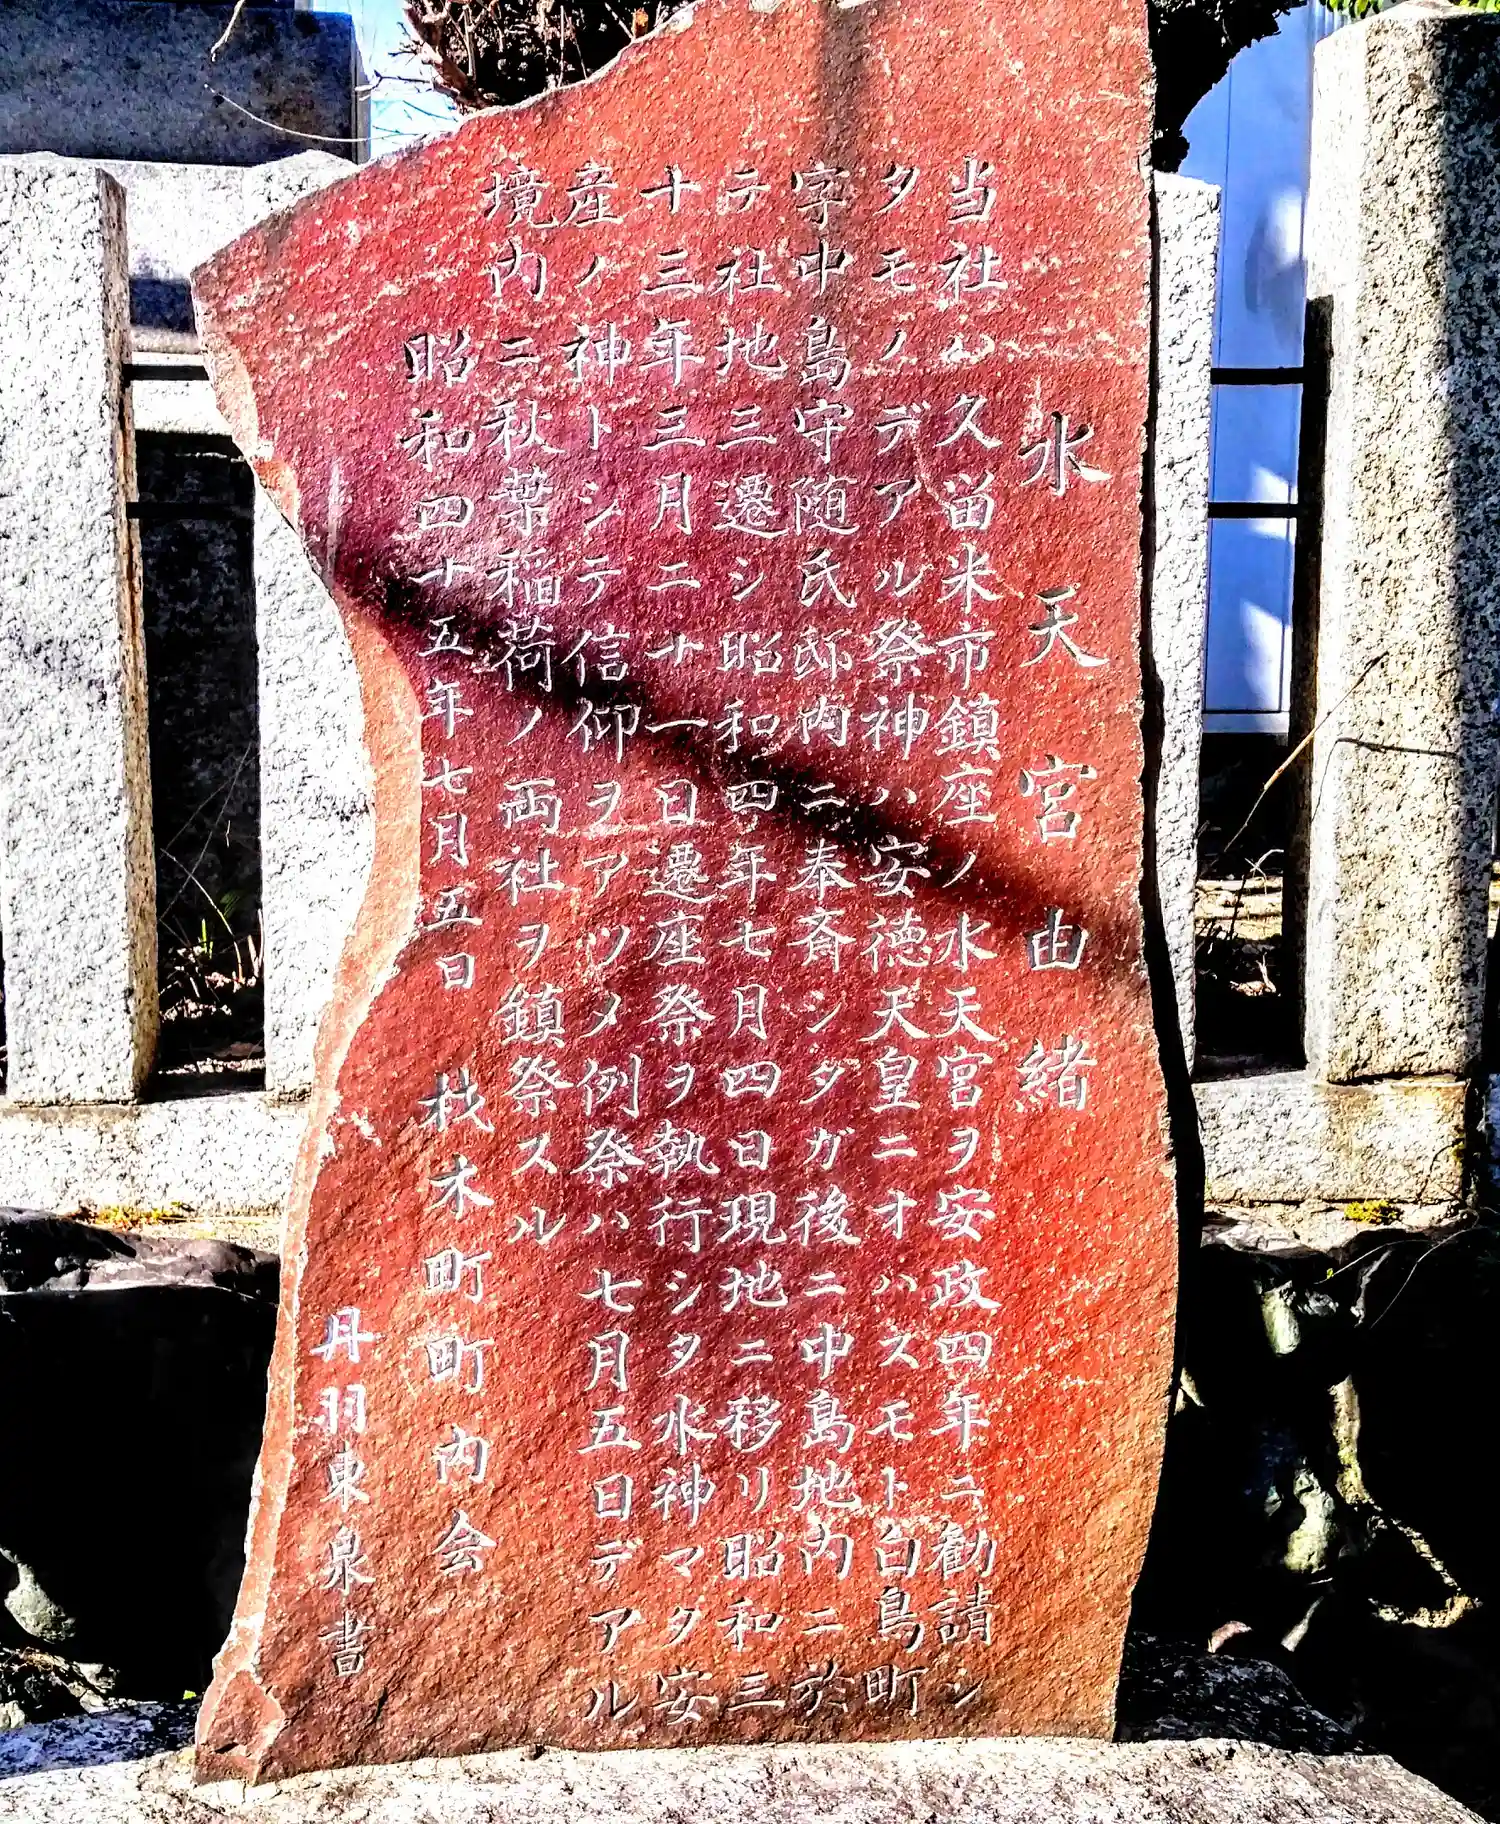 水天宮由緒
当社ハ久留米市鎮座ノ水天宮ヲ安政四年ニ勧請シ
タモノデアル祭神ハ安徳天皇ニオハスモト白鳥町
字中島守随氏邸内ニ奉斎シタガ後ニ中島地内ニ於
テ社地三遷シ昭和四年七月四日現地ニ移リ昭和三
十三年三月二十一日遷座祭ヲ執行シタ水神マタ安
産ノ神トシテ信仰ヲアツメ例祭ハ七月五日デアル
境内ニ秋葉稲荷ノ両社ヲ鎮祭スル
昭和四十五年七月五日 杁木町町内会
丹羽東泉書